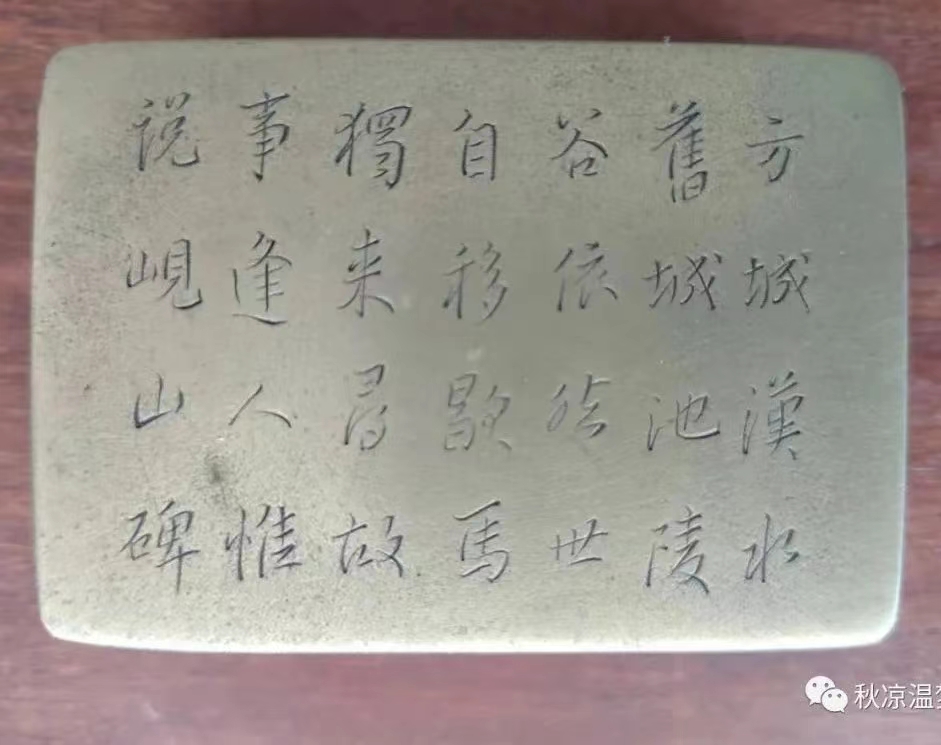 方城漢水
舊城池陵
谷依然世
自移歇馬
獨来尋故
事逢人惟
说峴山碑
秋凉温